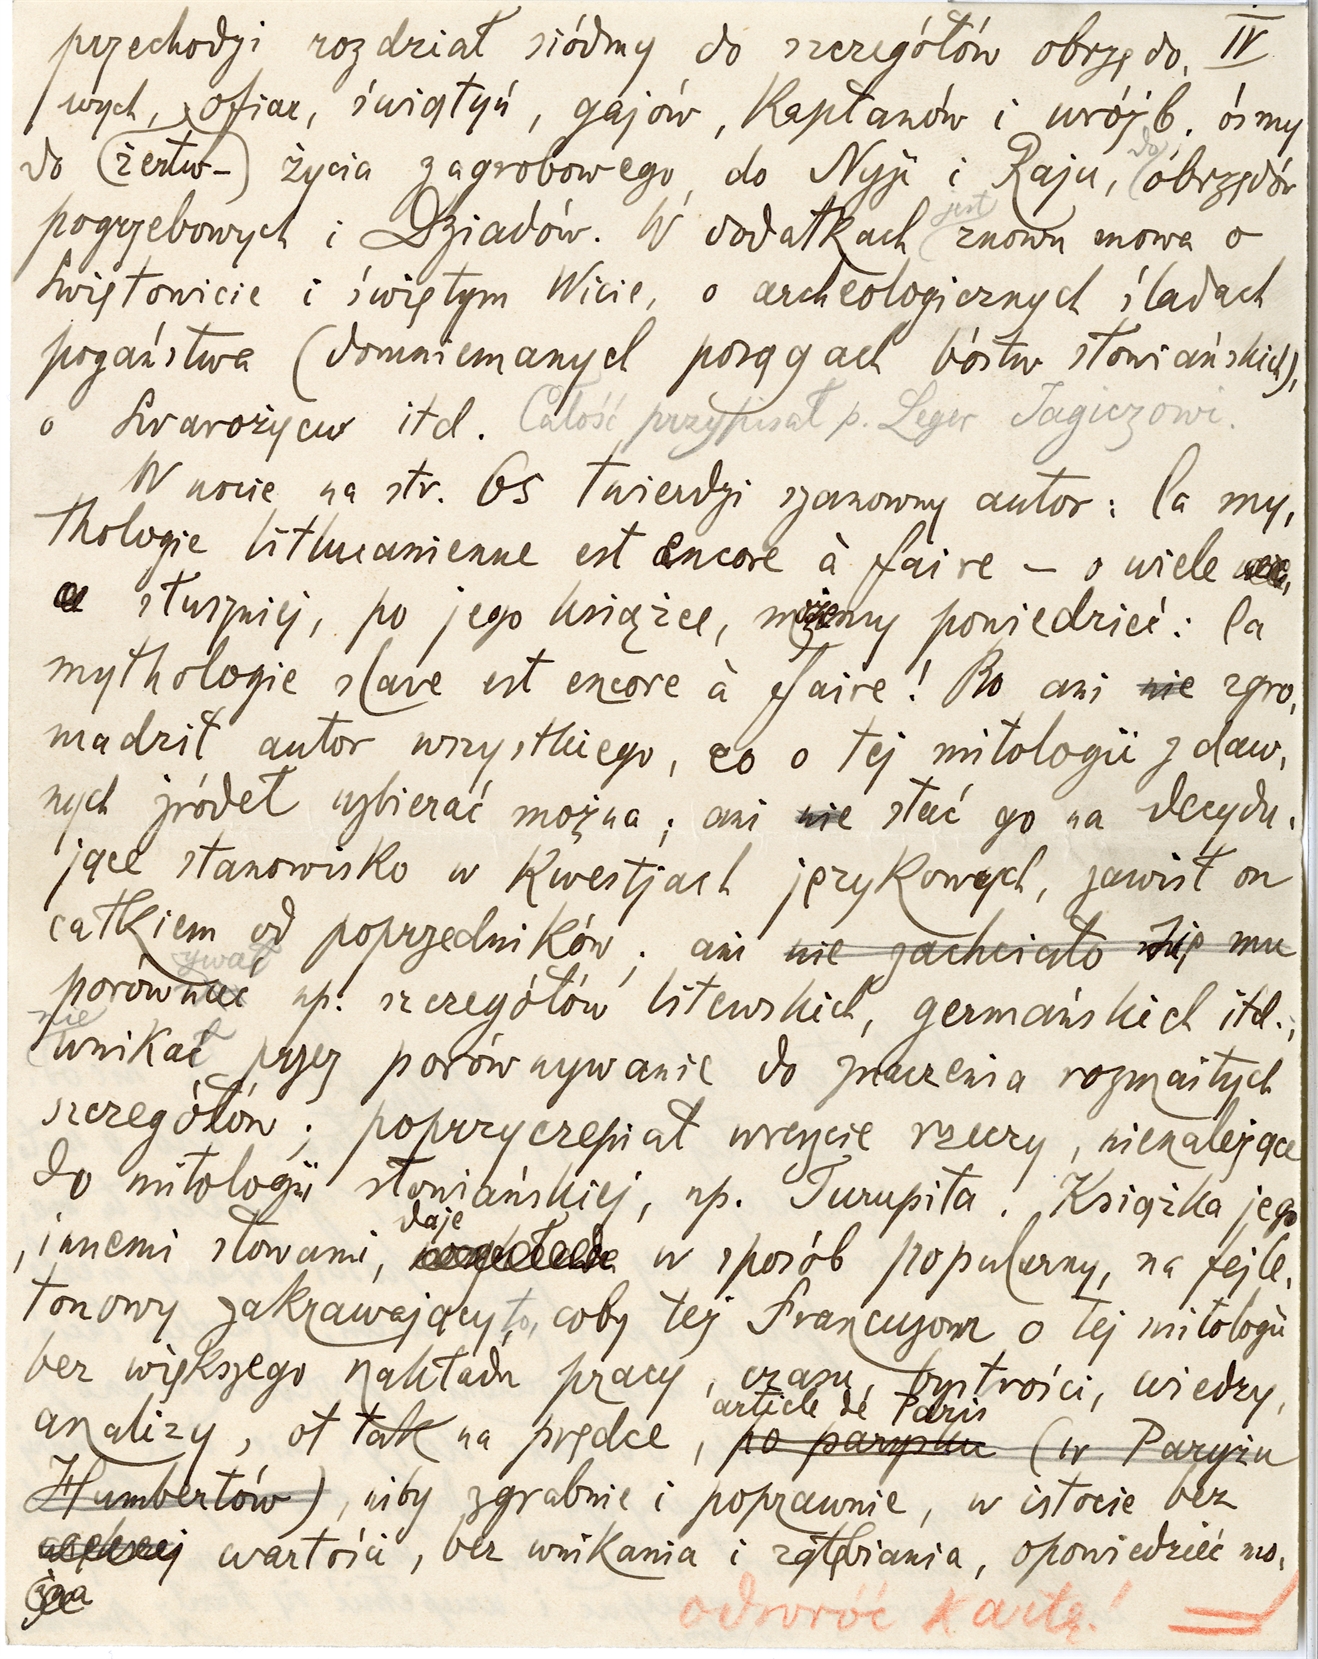 przechodzi rozdział siódmy do szczegółów obrzędo, IV
wych, ofiar, świątyń, gajów, kapłanów i wróżb. ósmy
do (żertw-) życia zagrobowego, do Nyji i Raju, do obrzędów
pogrzebowych i Dziadów. W dodatkach jest znowu mowa o
Świętowicie i świętym Wicie, o archeologicznych śladach
pogaństwa (domniemanych posągach bóstw słowiańskich),
o Swarożycu itd. Całość przypisał p. Leger Jagiczowi.
W nocie na str. 65 twierdzi szanowny autor: la my,
thologie lithuanienne est encore à faire – o wiele
słuszniej, po jego książce, możemy powiedzieć: la
mythologie slave est encore à faire! Bo ani nie zgro,
madził autor wszystkiego, co o tej mitologii z daw,
nych źródeł uzbierać można; ani nie stać go na decydu,
jące stanowisko w kwestjach językowych, zawisł on
całkiem od poprzedników; ani nie zachciało się mu
ywał
porównać np. szczegółów litewskich, germańskich itd.,
nie
wnikał przez porównywanie do znaczenia rozmaitych
szczegółów; poprzyczepiał wreszcie rzeczy, nienależące
do mitologii słowiańskiej, np. Turupita. Książka jego
daje
, innemi słowami, w sposób popularny, na fejle,
tonowy zakrawający, to, coby tej Francuzom o tej mitologii
bez większego nakładu pracy, czasu, bystrości, wiedzy,
article de Paris
analizy, ot tak na prędce, po parysku (w Paryżu
Humbertów), niby zgrabnie i poprawnie, w istocie bez
większej wartości, bez wnikania i zgłębiania, opowiedzieć mo,
żna
odwróć kartę!